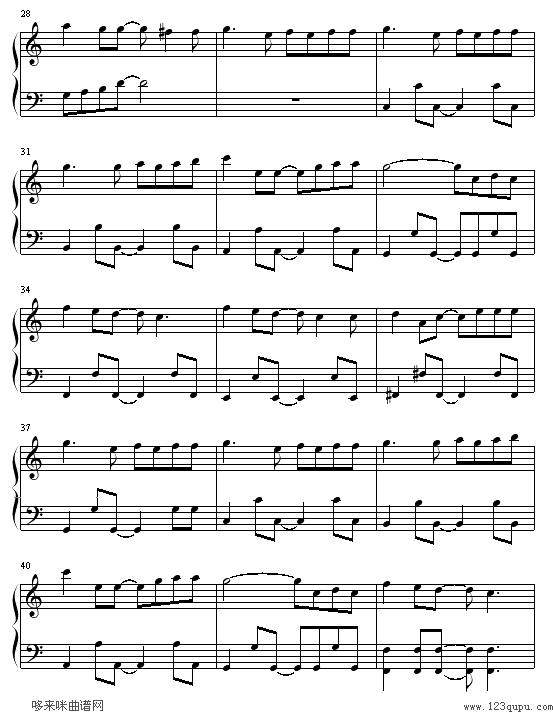 28
31
34
37
40
哆来咪曲谱网
www.123qupu.com